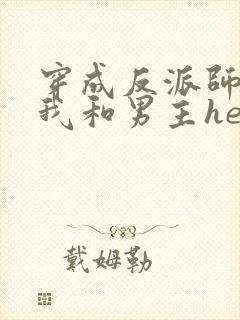 穿成反派師
我和男主he
戴姆勒